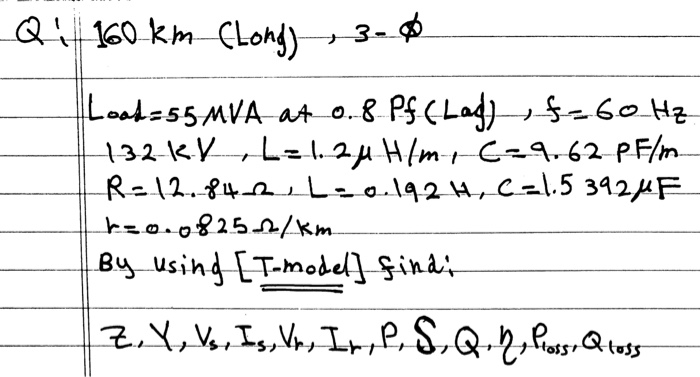 Q: 160 km (Long), 3-ϕ
Load=55 MVA at 0.8 Pf (Lag), f=60 Hz
132 kV, L=1.2μ H/m, C=9.62 PF/m
R=12.84Ω, L=0.192 H, C=1.5392μF
r=0.0825Ω/km
By using [T-model] find:
Z, Y, Vs, Is, Vr, Ir, P, S, Q, η, Ploss, Qloss